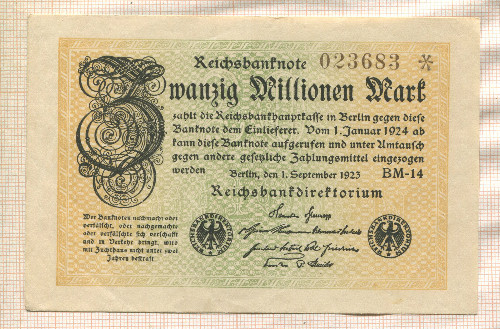 Reichsbanknote 023683 *
Zwanzig Millionen Mark
zahlt die Reichsbankhauptkasse in Berlin gegen diese
Banknote dem Einlieferer. Vom 1. Januar 1924 ab
kann diese Banknote aufgerufen und unter Umtausch
gegen andere gesetzliche Zahlungsmittel eingezogen
werden Berlin, den 1. September 1923 BM-14
Reichsbankdirektorium
Wer Banknoten nachmacht oder
verfälscht, oder nachgemachte
oder verfälschte sich verschafft
und in Verkehr bringt, wird
mit Zuchthaus nicht unter zwei
Jahren bestraft